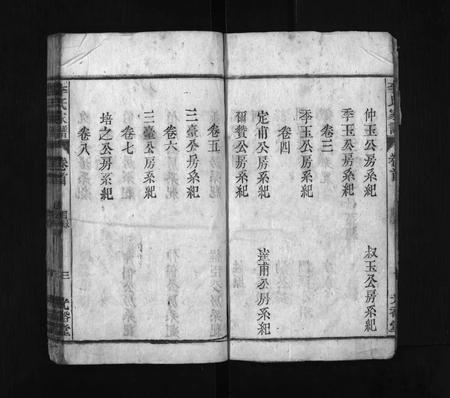 仲玉公房系紀
叔玉公房系紀
季玉公房系紀
卷三
季玉公房系紀
卷四
定甫公房系紀
崔甫公房系紀
爾贊公房系紀
卷五
三臺公房系紀
卷六
三臺公房系紀
卷七
培之公房系紀
卷八
李氏家譜
卷首
三
光裕堂